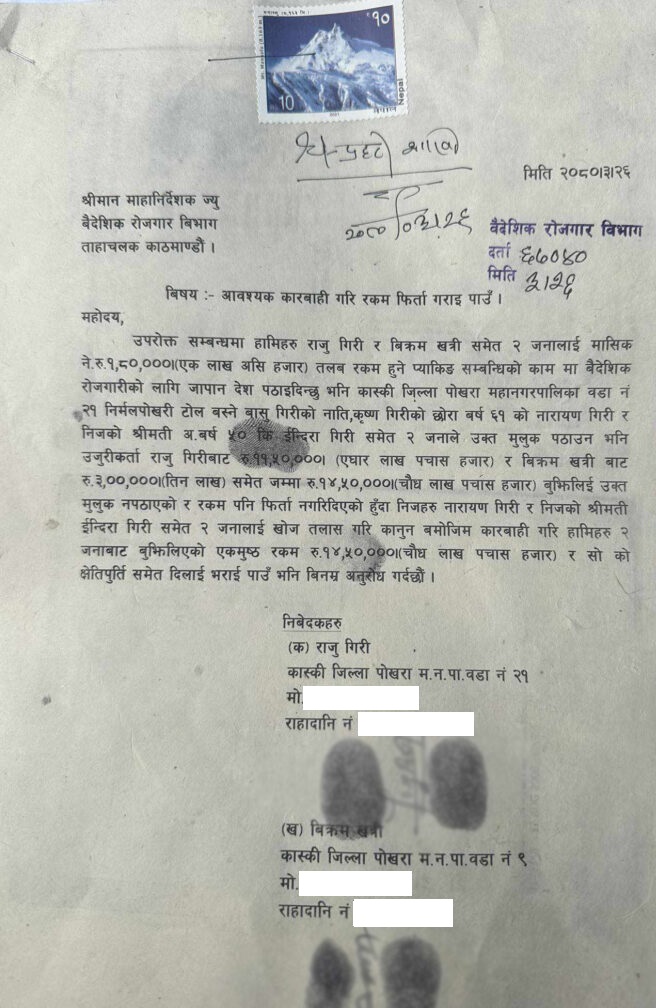 १०
10
Nepal
नेपाल
मिति २०८०।३।२६
श्रीमान माहानिर्देशक ज्यु
बैदेशिक रोजगार बिभाग
ताहाचलक काठमाण्डौं ।
२०८०।०३।२६
वैदेशिक रोजगार विभाग
दर्ता ६७०४०
मिति ३।२६
बिषय :- आवश्यक कारबाही गरि रकम फिर्ता गराइ पाउँ ।
महोदय,
उपरोक्त सम्बन्धमा हामिहरु राजु गिरी र बिक्रम खत्री समेत २ जनालाई मासिक
ने.रु.१,८०,०००।(एक लाख असि हजार) तलब रकम हुने प्याकिङ सम्बन्धिको काम मा बैदेशिक
रोजगारीको लागि जापान देश पठाइदिन्छु भनि कास्की जिल्ला पोखरा महानगरपालिका वडा नं
२१ निर्मलपोखरी टोल बस्ने बासु गिरीको नाति,कृष्ण गिरीको छोरा बर्ष ६१ को नारायण गिरी र
निजको श्रीमती अ.बर्ष ५० कि ईन्दिरा गिरी समेत २ जनाले उक्त मुलुक पठाउन भनि
उजुरीकर्ता राजु गिरीबाट रु.११,५०,०००। (एघार लाख पचास हजार) र बिक्रम खत्री बाट
रु.३,००,०००।(तिन लाख) समेत जम्मा रु.१४,५०,०००।(चौध लाख पचांस हजार) बुझिलिई उक्त
मुलुक नपठाएको र रकम पनि फिर्ता नगरिदिएको हुँदा निजहरु नारायण गिरी र निजको श्रीमती
ईन्दिरा गिरी समेत २ जनालाई खोज तलास गरि कानुन बमोजिम कारबाही गरि हामिहरु २
जनाबाट बुझिलिएको एकमुष्ठ रकम रु.१४,५०,०००।(चौध लाख पचास हजार) र सो को
क्षेतिपुर्ति समेत दिलाई भराई पाउँ भनि बिनम्र अनुरोध गर्दछौं ।
निबेदकहरु
(क) राजु गिरी
कास्की जिल्ला पोखरा म.न.पा.वडा नं २१
मो.
राहादानि नं
(ख) बिक्रम खत्री
कास्की जिल्ला पोखरा म.न.पा.वडा नं ९
मो.
राहादानि नं